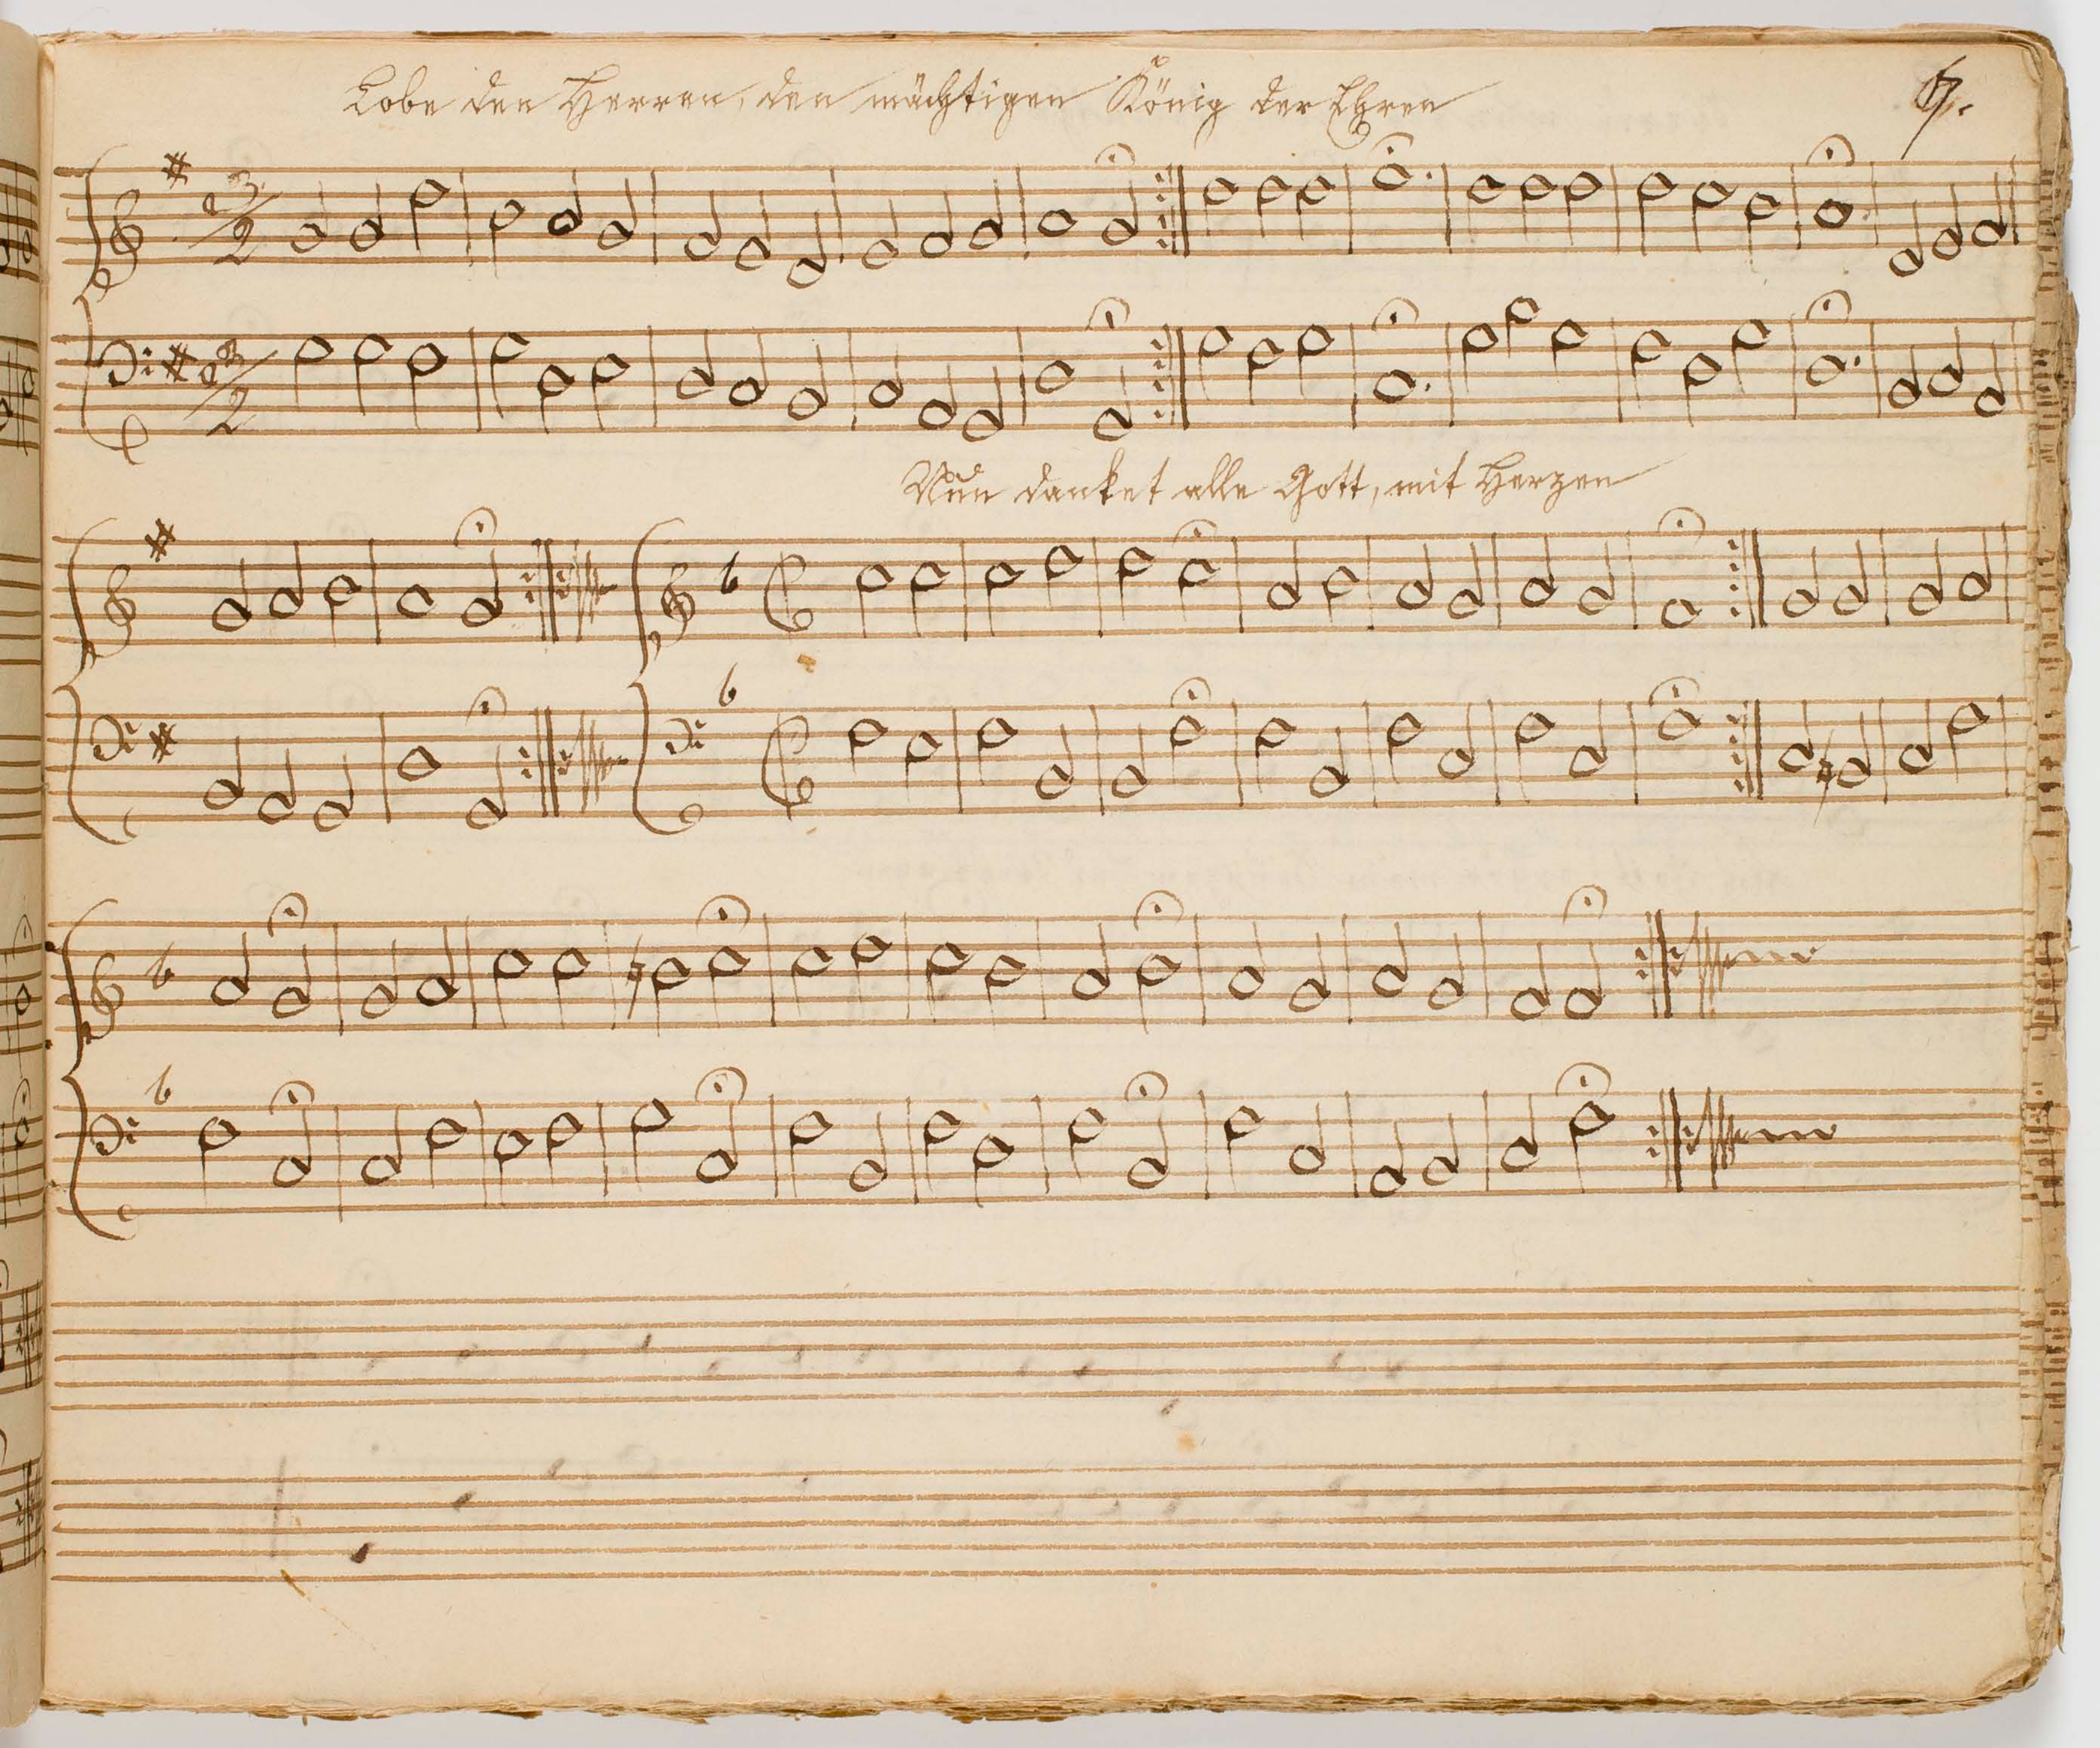 Lobe den Herren, den mächtigen König der Ehren
Nun danket alle Gott, mit Herzen